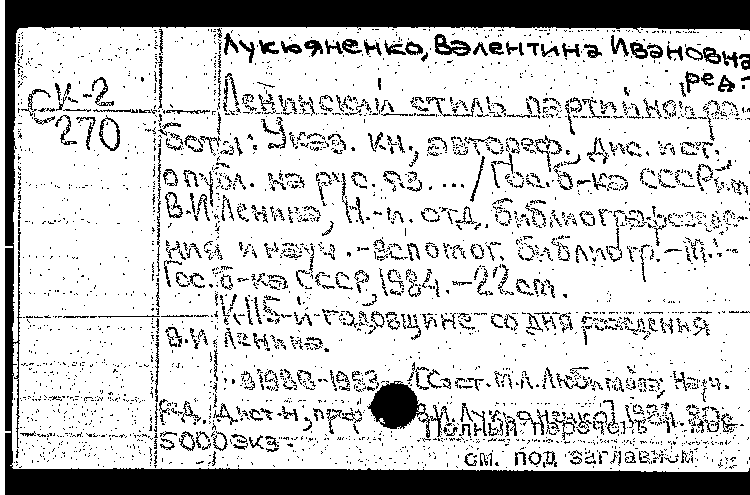 Лукьяненко, Валентина Ивановна
ред.
СК-2
270
Ленинский стиль партийной ра-
боты: Указ. кн., автореф. дис. и ст.,
опубл. на рус. яз. ... / Гос. б-ка СССР им.
В.И. Ленина, Н.-и. отд. библиографоведе-
ния и науч.-вспомог. библиогр. - М.:
Гос. б-ка СССР, 1984. - 22 см.
К 115-й годовщине со дня рождения
В.И. Ленина.
1980-1983 / [Сост. М.Л. Любимова; Науч.
ред. д. ист. н., проф. В.И. Лукьяненко]. 1984.
5000 экз.
Полный перечень
см. под заглавием